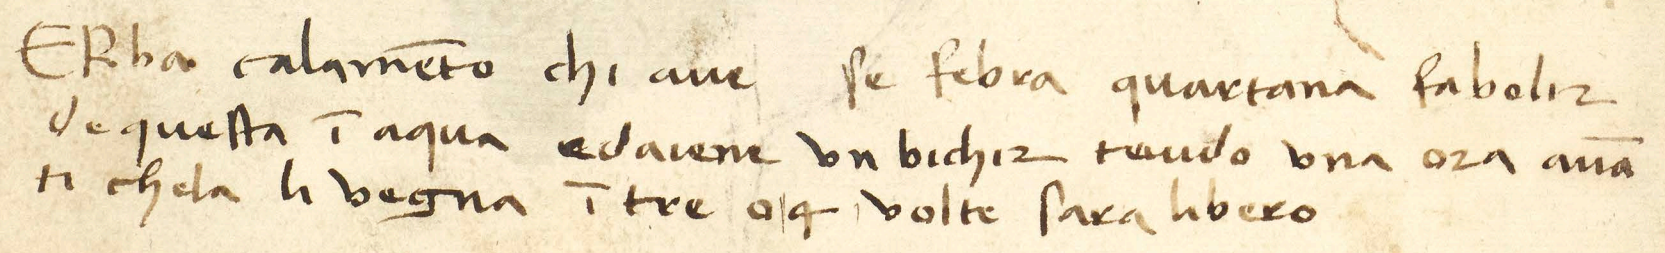 ERba calamēto chi aue se febra quartana fa bolir
de questa ī aqua e daiene vn bichir teuido vna ora auā
ti chela li vegna ī tre o 4 volte sara libero